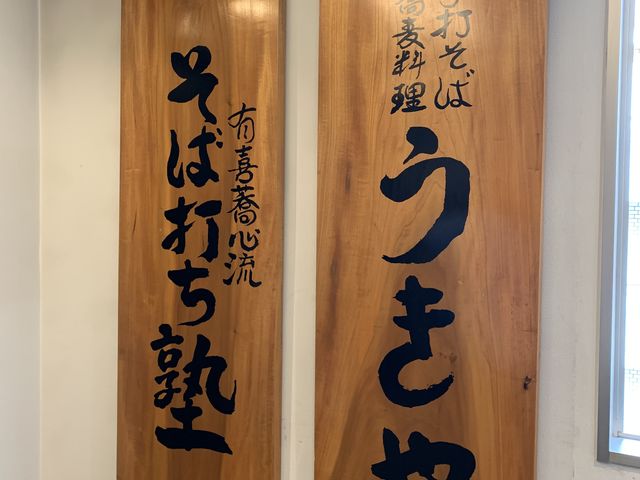 手打そば
蕎麦料理
うきや
有喜蕎心流
そば打ち塾